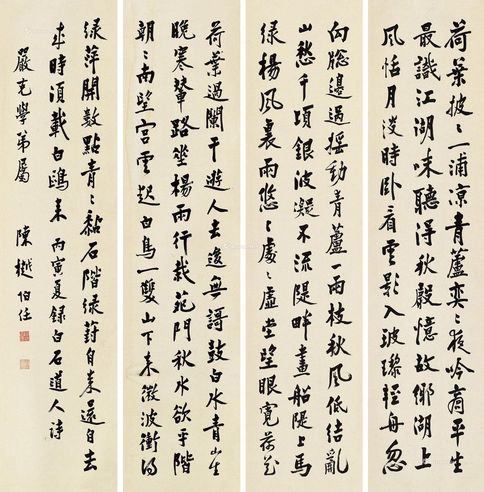 荷葉披〻一浦涼青蘆奕〻夜吟商平生
最識江湖味聽得秋聲憶故鄉湖上
風恬月淡時卧看雲影入玻瓈輕舟忽
向牕邊過搖動青蘆一兩枝秋風低結亂
山愁千頃銀波凝不流隄畔畫船隄上馬
綠楊風裏兩悠〻處〻虛堂望眼寬荷花
荷葉過闌干遊人去後無謌鼓白水青山生
晚寒輦路垂楊兩行栽苑門秋水欲平階
朝〻南望宮雲起白鳥一雙山下來微波衝得
綠萍開數點青〻黏石階綠葑自來還自去
來時須載白鷗來 丙寅夏錄白石道人詩
嚴克譽弟屬 陳樾伯任